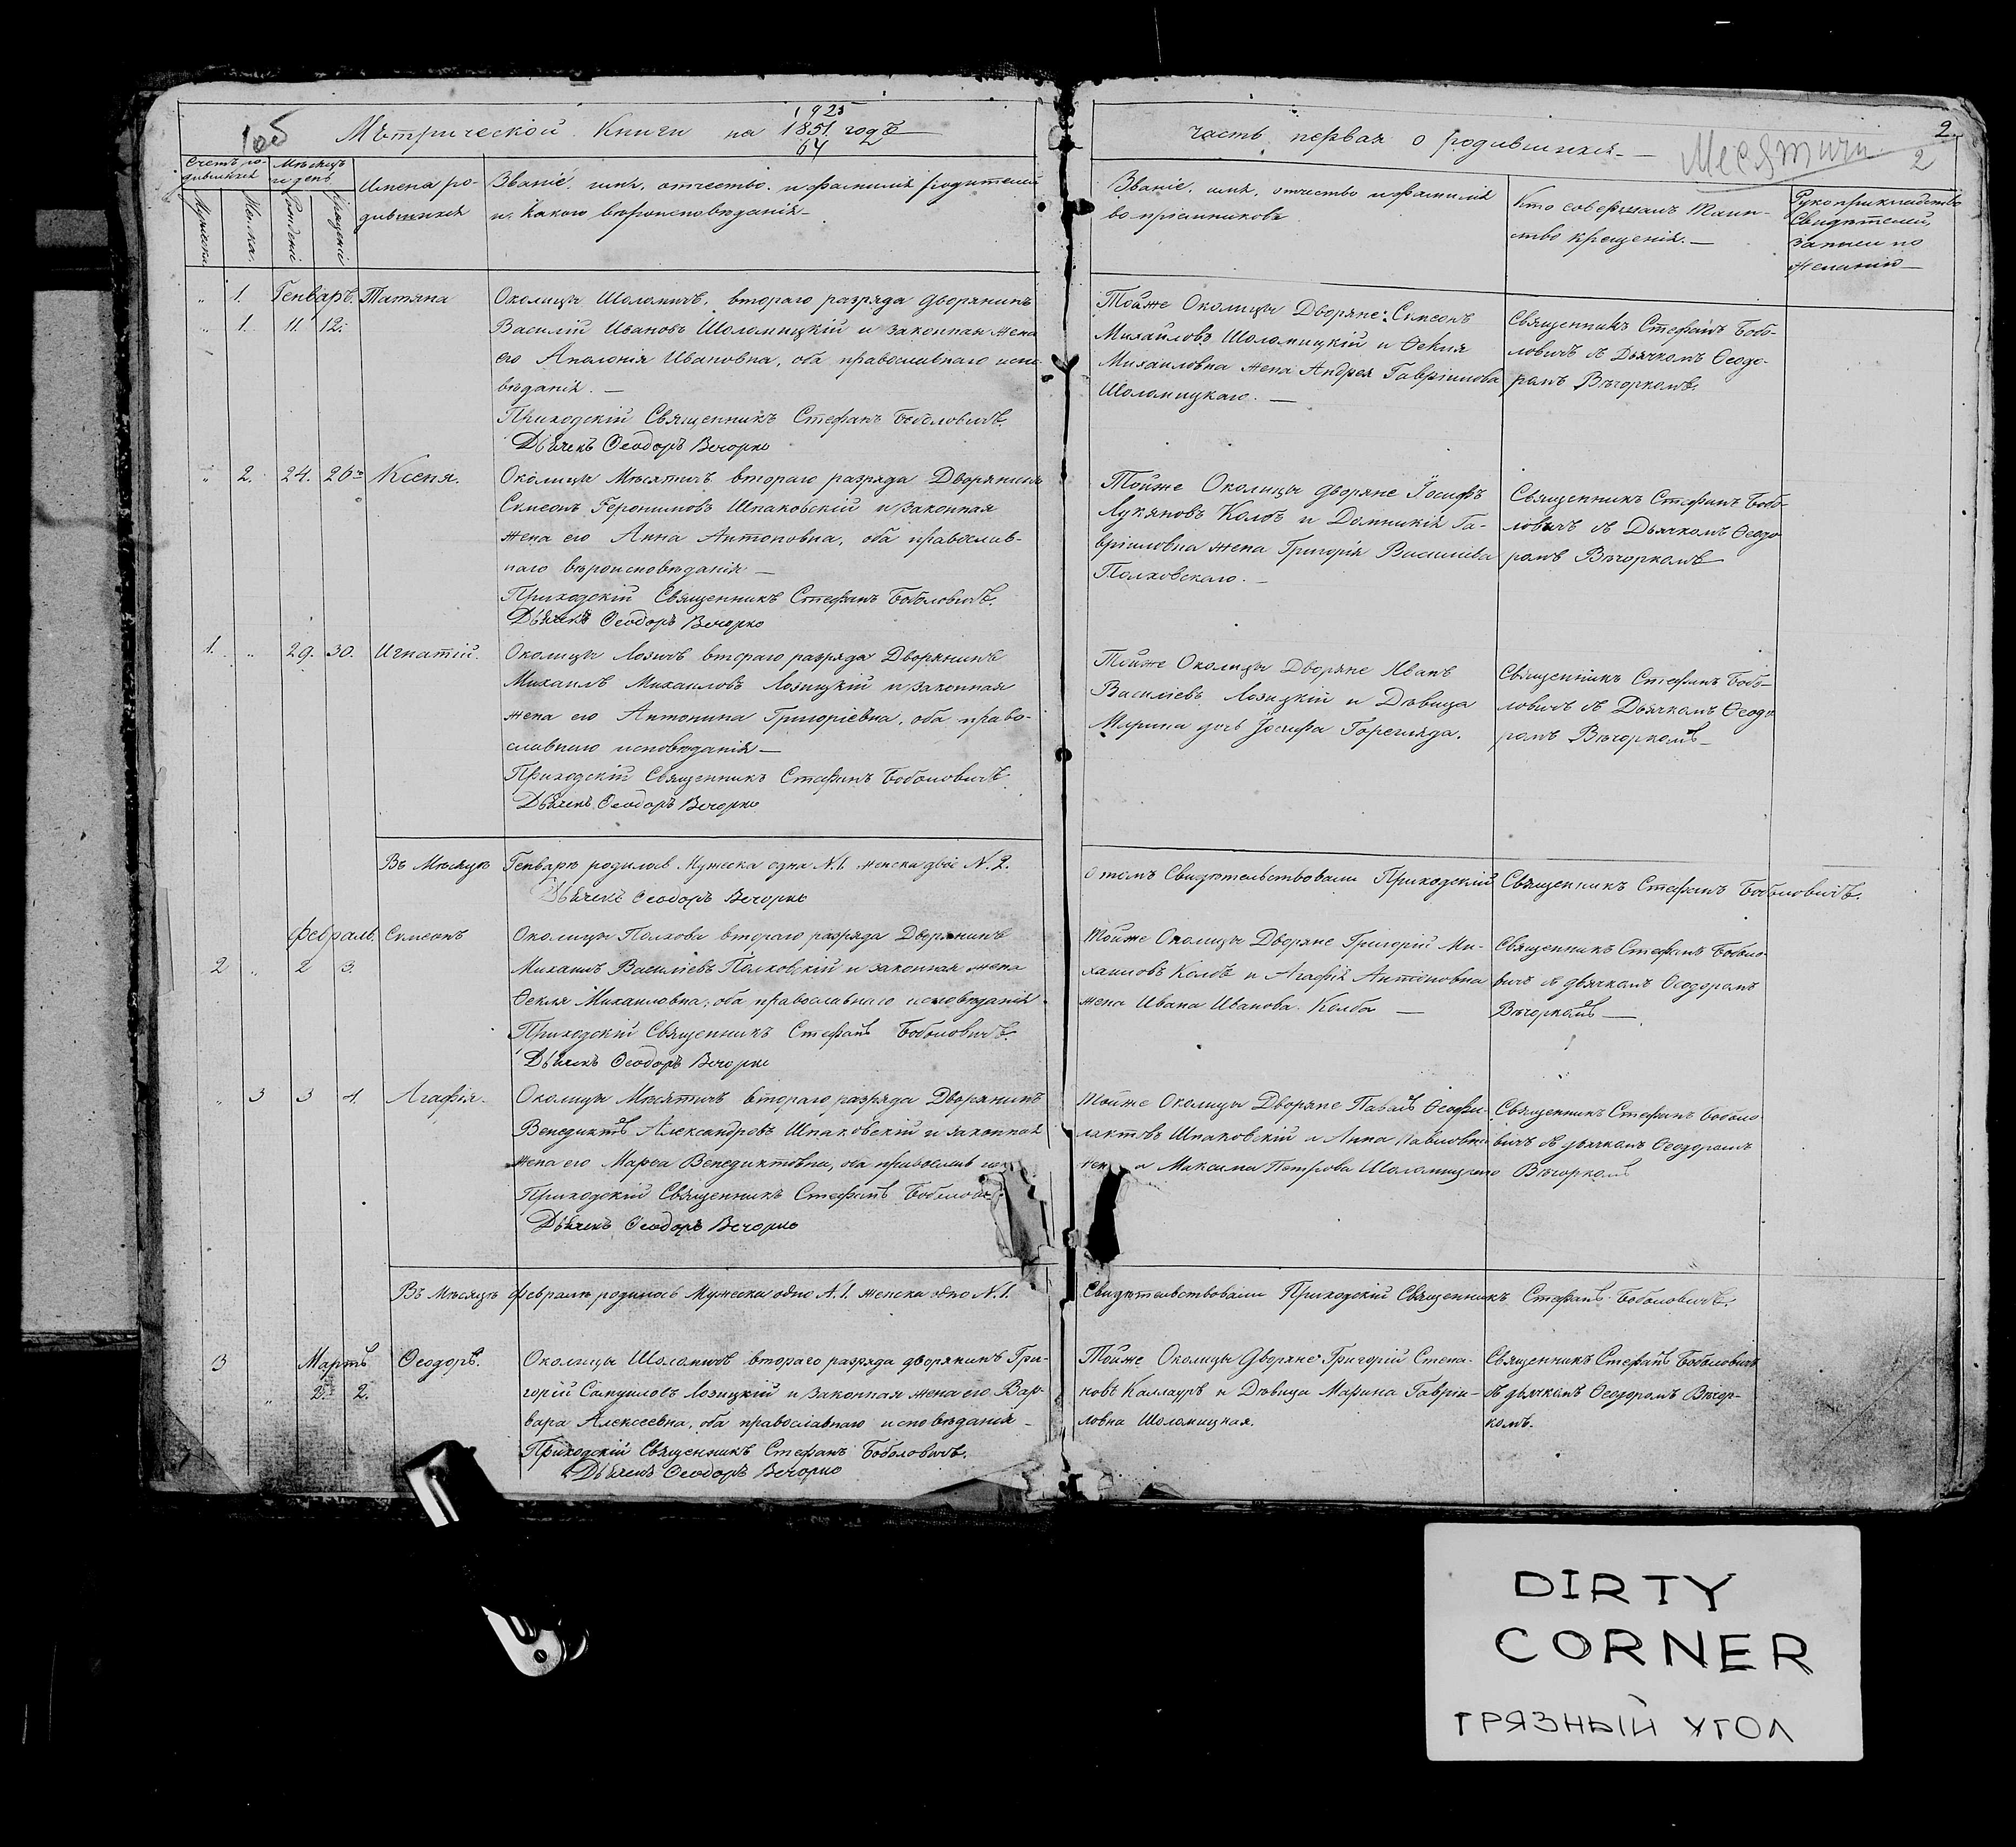 1925
Метрической Книги на 1851 годъ
64
часть первая о родившихся.
Месятичи
2
2
Счетъ ро-
дившихся
Мѣсяцъ
и день
Имена ро-
дившихся
Званіе, имя, отчество, и фамилія родителей
и какого вѣроисповѣданія
Званіе, имя, отчество и фамилія
воспріемниковъ
Кто совершалъ таин-
ство крещенія.
Рукоприкладство
Свидѣтелей
записи по
желанію
Мужеска
Женска
Рожденія
Крещенія
„ 1. Генварь. Татяна
„ 1. 11. 12.
Околицы Шоломичъ, втораго разряда дворянинъ
Василій Ивановъ Шоломицкій и законная жена
его Аполонія Ивановна, оба православнаго испо-
вѣданія. —
Приходскій Священникъ Стефанъ Боболовичъ.
Дьячекъ Ѳеодоръ Вечорко
Тойже Околицы Дворяне: Симеонъ
Михайловъ Шоломицкій и Ѳекля
Михайловна жена Андрея Гавріилова
Шоломицкаго. —
Священникъ Стефанъ Бобо-
ловичъ съ Дьячкомъ Ѳеодо-
ромъ Вѣчоркомъ.
„ 2. 24. 26. Ксеня.
Околицы Мѣсятичъ втораго разряда Дворянинъ
Симеонъ Геронимовъ Шпаковскій и законная
жена его Анна Антоновна, оба православ-
наго вѣроисповѣданія —
Приходскій Священникъ Стефанъ Боболовичъ.
Дьячекъ Ѳеодоръ Вечорко
Тойже Околицы дворяне Іосифъ
Лукяновъ Колбъ и Домникія Га-
вріиловна жена Григорія Василіева
Полховскаго. —
Священникъ Стефанъ Бобо-
ловичъ съ Дьячкомъ Ѳеодо
ромъ Вѣчоркомъ
1. „ 29. 30. Игнатій.
Околицы Лозичъ втораго разряда Дворянинъ
Михаилъ Михаиловъ Лозицкій и законная
жена его Антонина Григоріевна, оба право-
славнаго исповѣданія —
Приходскій Священникъ Стефанъ Боболовичъ.
Дьячекъ Ѳеодоръ Вечорко
Тойже Околицы Дворяне Иванъ
Василіевъ Лозицкій и Дѣвица
Марина дочь Іосифа Горегляда.
Священникъ Стефанъ Бобо-
ловичъ съ Дьячкомъ Ѳеодо
ромъ Вѣчоркомъ —
Въ Мѣсяцѣ Генварѣ родилось Мужеска одна N.1. женска двіе N.2.
Дьячекъ Ѳеодоръ Вечорко
О томъ Свидѣтельствовали Приходскій Священникъ Стефанъ Боболовичъ.
Февраль. Симеонъ
2 „ 2 3.
Околицы Полхова втораго разряда Дворянинъ
Михаилъ Василіевъ Полховскій и законная жена
Ѳекля Михаиловна, оба православнаго исповѣданія
Приходскій Священникъ Стефанъ Боболовичъ.
Дьячекъ Ѳеодоръ Вечорко
Тойже Околицы Дворяне Григорій Ми-
хаиловъ Колбъ и Агафія Антоновна
жена Ивана Иванова Колба —
Священникъ Стефанъ Боболо-
вичъ съ дьячкомъ Ѳеодоромъ
Вѣчоркомъ —
„ 3 3 4. Агафія.
Околицы Мѣсятичъ втораго разряда Дворянинъ
Венедиктъ Александровъ Шпаковскій и законная
жена его Марѳа Венедиктовна, оба православ
Приходскій Священникъ Стефанъ Боболов
Дьячекъ Ѳеодоръ Вечорко
Тойже Околицы Дворяне Павелъ Ѳеофи-
лактовъ Шпаковскій и Анна Павловна
жена Максима Петрова Шоломицкаго
Священникъ Стефанъ Боболо
вичъ съ дьячкомъ Ѳеодоромъ
Вѣчоркомъ
Въ Мѣсяцѣ Февралѣ родилось Мужеска одно N.1. женска одно N.1.
Свидѣтельствовали Приходскій Священникъ Стефанъ Боболовичъ.
3 Мартъ Ѳеодоръ.
„ 2 2.
Околицы Шоломичъ втораго разряда дворянинъ Гри-
горій Самуиловъ Лозицкій и законная жена его Вар-
вара Алексеевна, оба православнаго исповѣданія —
Приходскій Священникъ Стефанъ Боболовичъ.
Дьячекъ Ѳеодоръ Вечорко
Тойже Околицы Дворяне Григорій Степа-
новъ Каллауръ и Дѣвица Марина Гавріи-
ловна Шоломицкая.
Священникъ Стефанъ Боболовичъ
съ дьячкомъ Ѳеодоромъ Вѣчор-
комъ.
DIRTY
CORNER
ГРЯЗНЫЙ УГОЛ